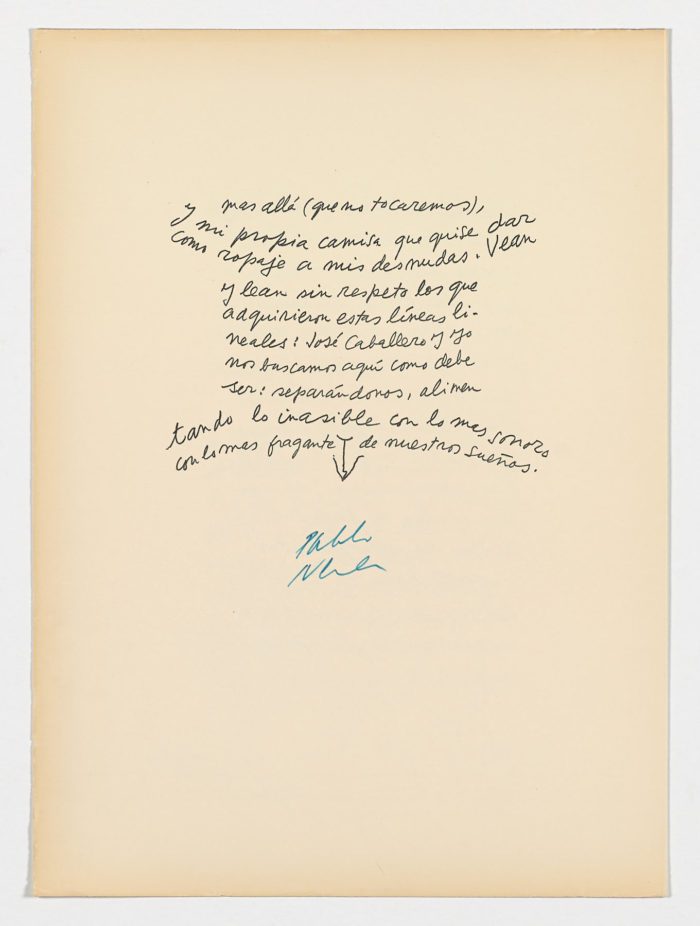 y mas allá (que no tocaremos),
mi propia camisa que quise dar
como ropaje a mis desnudas. Vean
y lean sin respeto los que
adquirieron estas líneas li-
neales: José Caballero y yo
nos buscamos aquí como debe
ser: separándonos, alimen
tando lo inasible con lo mas sonoro
con lo mas fragante de nuestros sueños.
Pablo
Neruda